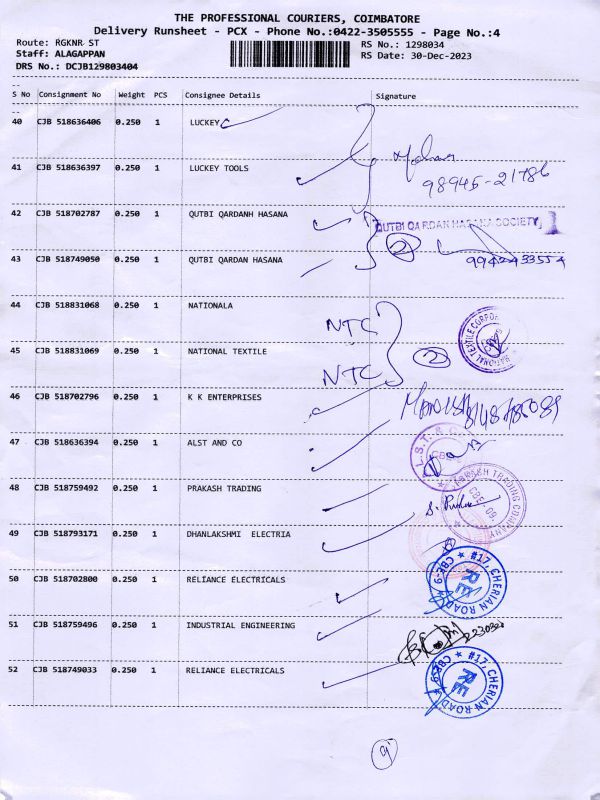 THE PROFESSIONAL COURIERS, COIMBATORE
Delivery Runsheet - PCX - Phone No.:0422-3505555 - Page No.:4
Route: RGKNR ST
RS No.: 1298034
Staff: ALAGAPPAN
RS Date: 30-Dec-2023
DRS No.: DCJB129803404
S No Consignment No Weight PCS Consignee Details Signature
40 CJB 518636406 0.250 1 LUCKEY
41 CJB 518636397 0.250 1 LUCKEY TOOLS
98945-21786
42 CJB 518702787 0.250 1 QUTBI QARDANH HASANA
QUTBI QARDAN HASANA SOCIETY
2
43 CJB 518749050 0.250 1 QUTBI QARDAN HASANA
9942433554
44 CJB 518831068 0.250 1 NATIONALA
NTC
NATIONAL TEXTILE
45 CJB 518831069 0.250 1 NATIONAL TEXTILE
2
NTC
46 CJB 518702796 0.250 1 K K ENTERPRISES
47 CJB 518636394 0.250 1 ALST AND CO
48 CJB 518759492 0.250 1 PRAKASH TRADING
TRADING COMPANY
CBE - 09.
49 CJB 518793171 0.250 1 DHANLAKSHMI ELECTRIA
50 CJB 518702800 0.250 1 RELIANCE ELECTRICALS
#17, CHERIAN ROAD ★ CBE-9 ★
RE
51 CJB 518759496 0.250 1 INDUSTRIAL ENGINEERING
52 CJB 518749033 0.250 1 RELIANCE ELECTRICALS
#17, CHERIAN ROAD ★ CBE-9 ★
RE